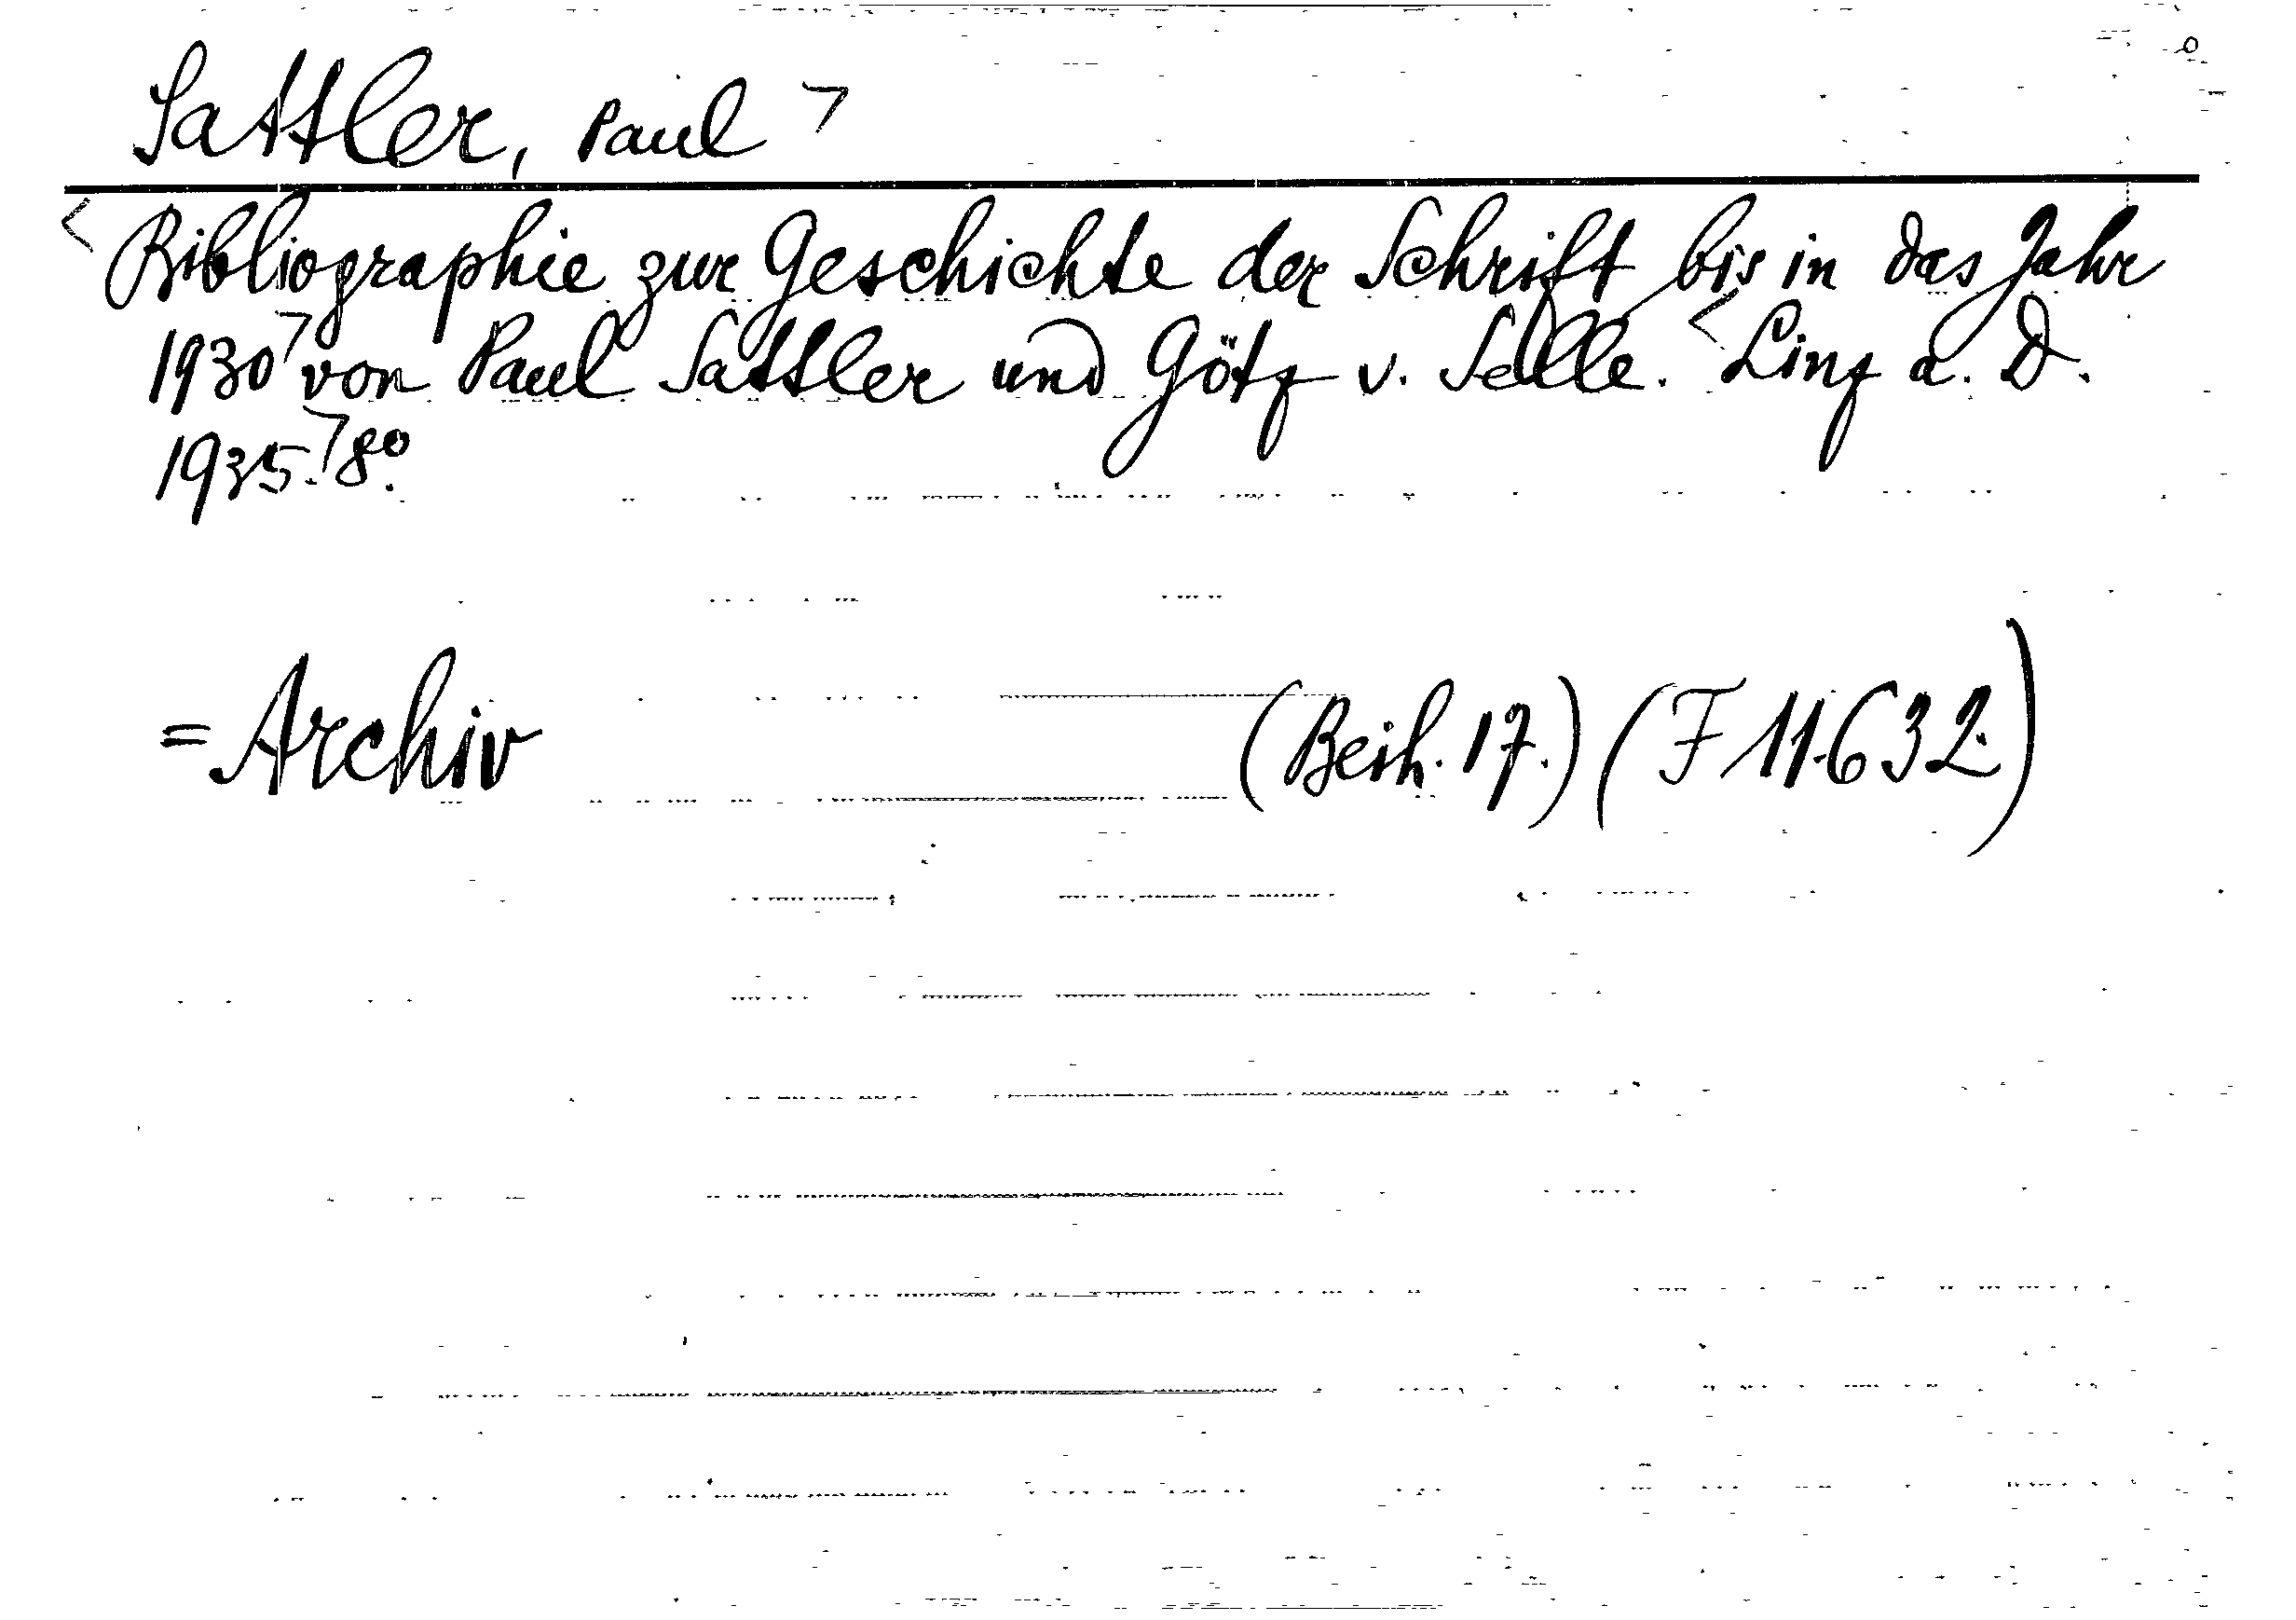 Sattler, Paul >
< Bibliographie zur Geschichte der Schrift bis in das Jahr
1930> von Paul Sattler und Götz v. Selle. < Linz a. D.
1935.> 8°.
= Archiv (Beih. 17.) (F 11.632.)